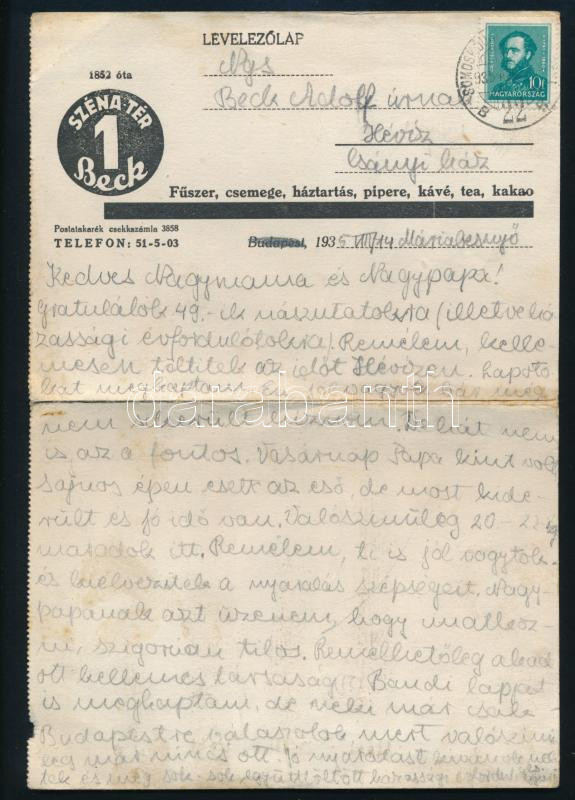 LEVELEZŐLAP
1852 óta
SZÉNA-TÉR
1
Beck
Nys
Beck Adolf úrnak
Hévíz
Csányi ház
10f
MAGYARORSZÁG
22
B
Fűszer, csemege, háztartás, pipere, kávé, tea, kakao
Postatakarék csekkszámla 3858
TELEFON: 51-5-03
Budapest, 1935 VIII/14 Máriabesnyő
Kedves Nagymama és Nagypapa!
Gratulálok 49.-ik nászutatokra (illetve há-
zassági évfordulótokra). Remélem, kelle-
mesen töltitek az időt Hévízen. Lapoto-
kat megkaptam. Én jól vagyok bár még
nem sikerült híznom. De hát nem
is az a fontos. Vasárnap Papa kint volt
sajnos épen esett az eső, de most kide-
rült és jó idő van. Valószínűleg 20-22-ig
maradok itt. Remélem, ti is jól vagytok
és kiélvezitek a nyaralás szépségeit. Nagy-
papának azt üzenem, hogy mullasz-
ni, szigorúan tilos. Remélhetőleg akad
ott kellemes társaság Bandi lapját
is megkaptam, de neki már csak
Budapestre válaszolok mert valószínű-
leg már nincs ott. Jó nyaralást kívánok
tek és még sok-sok együtt töltött házassági
darabanth.com